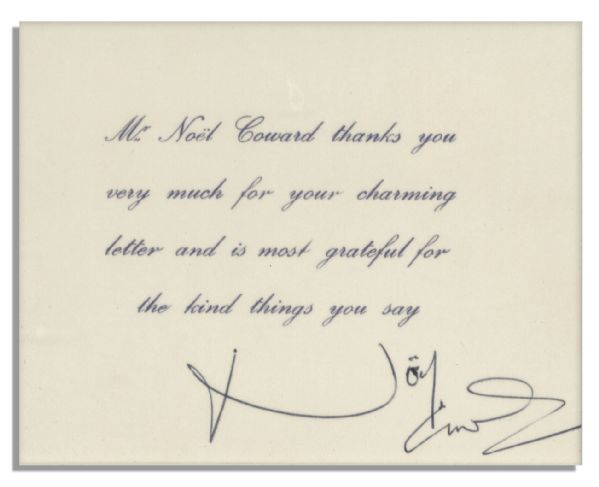 Mr. Noël Coward thanks you
very much for your charming
letter and is most grateful for
the kind things you say
Noël Coward